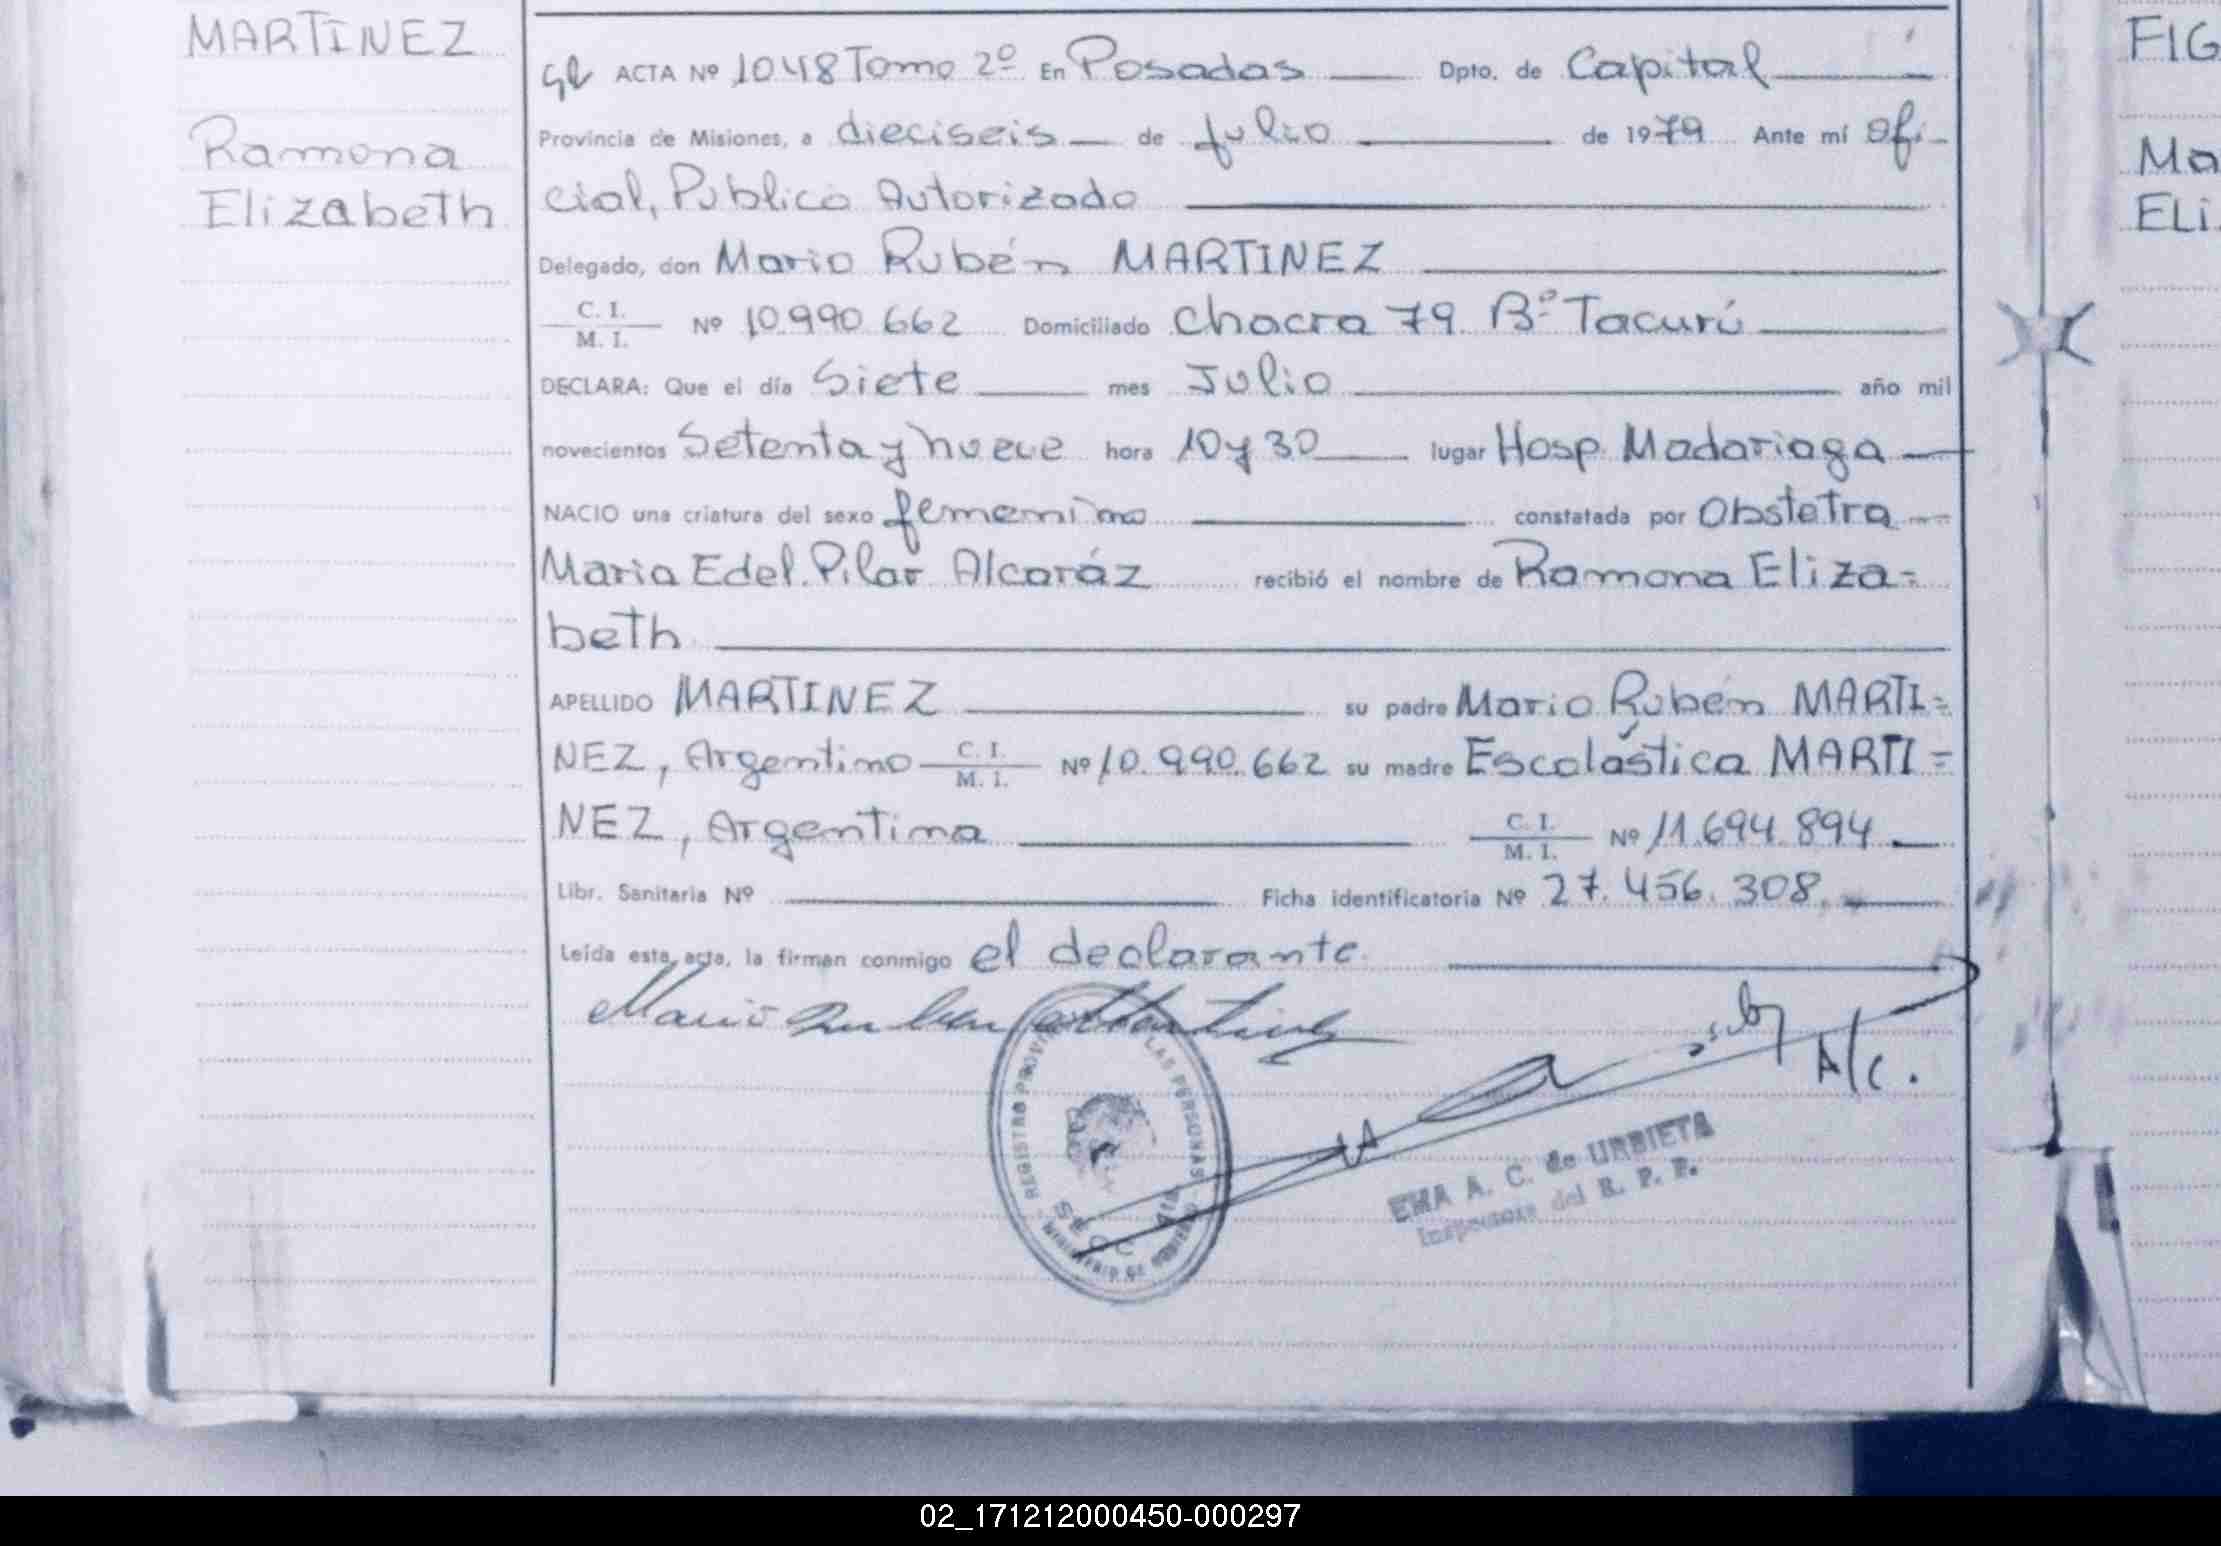 MARTINEZ
Ramona
Elizabeth
ACTA Nº 1048 Tomo 2º En Posadas Dpto. de Capital
Provincia de Misiones, a dieciseis de Julio de 1979 Ante mí Ofi-
cial, Publico Autorizado
Delegado, don Mario Rubén MARTINEZ
C. I.
M. I. Nº 10.990.662 Domiciliado Chacra 79 Bº Tacurú
DECLARA: Que el día Siete mes Julio año mil
novecientos Setenta y nueve hora 10 y 30 lugar Hosp. Madariaga
NACIO una criatura del sexo femenino constatada por Obstetra
Maria E del Pilar Alcaráz recibió el nombre de Ramona Eliza=
beth
APELLIDO MARTINEZ su padre Mario Rubén MARTI=
NEZ, Argentino C. I.
M. I. Nº 10.990.662 su madre Escolástica MARTI=
NEZ, Argentina C. I.
M. I. Nº 11.694.894
Libr. Sanitaria Nº Ficha identificatoria Nº 27.456.308.
Leída esta acta, la firman conmigo el declarante.
Mario Ruben Martinez
A/C.
REGISTRO PROVINCIAL DE LAS PERSONAS
MINISTERIO DE GOBIERNO
EMA A. C. de URBIETA
Inspectora del R. P. P.
FIG
Ma
ELi
02_171212000450-000297